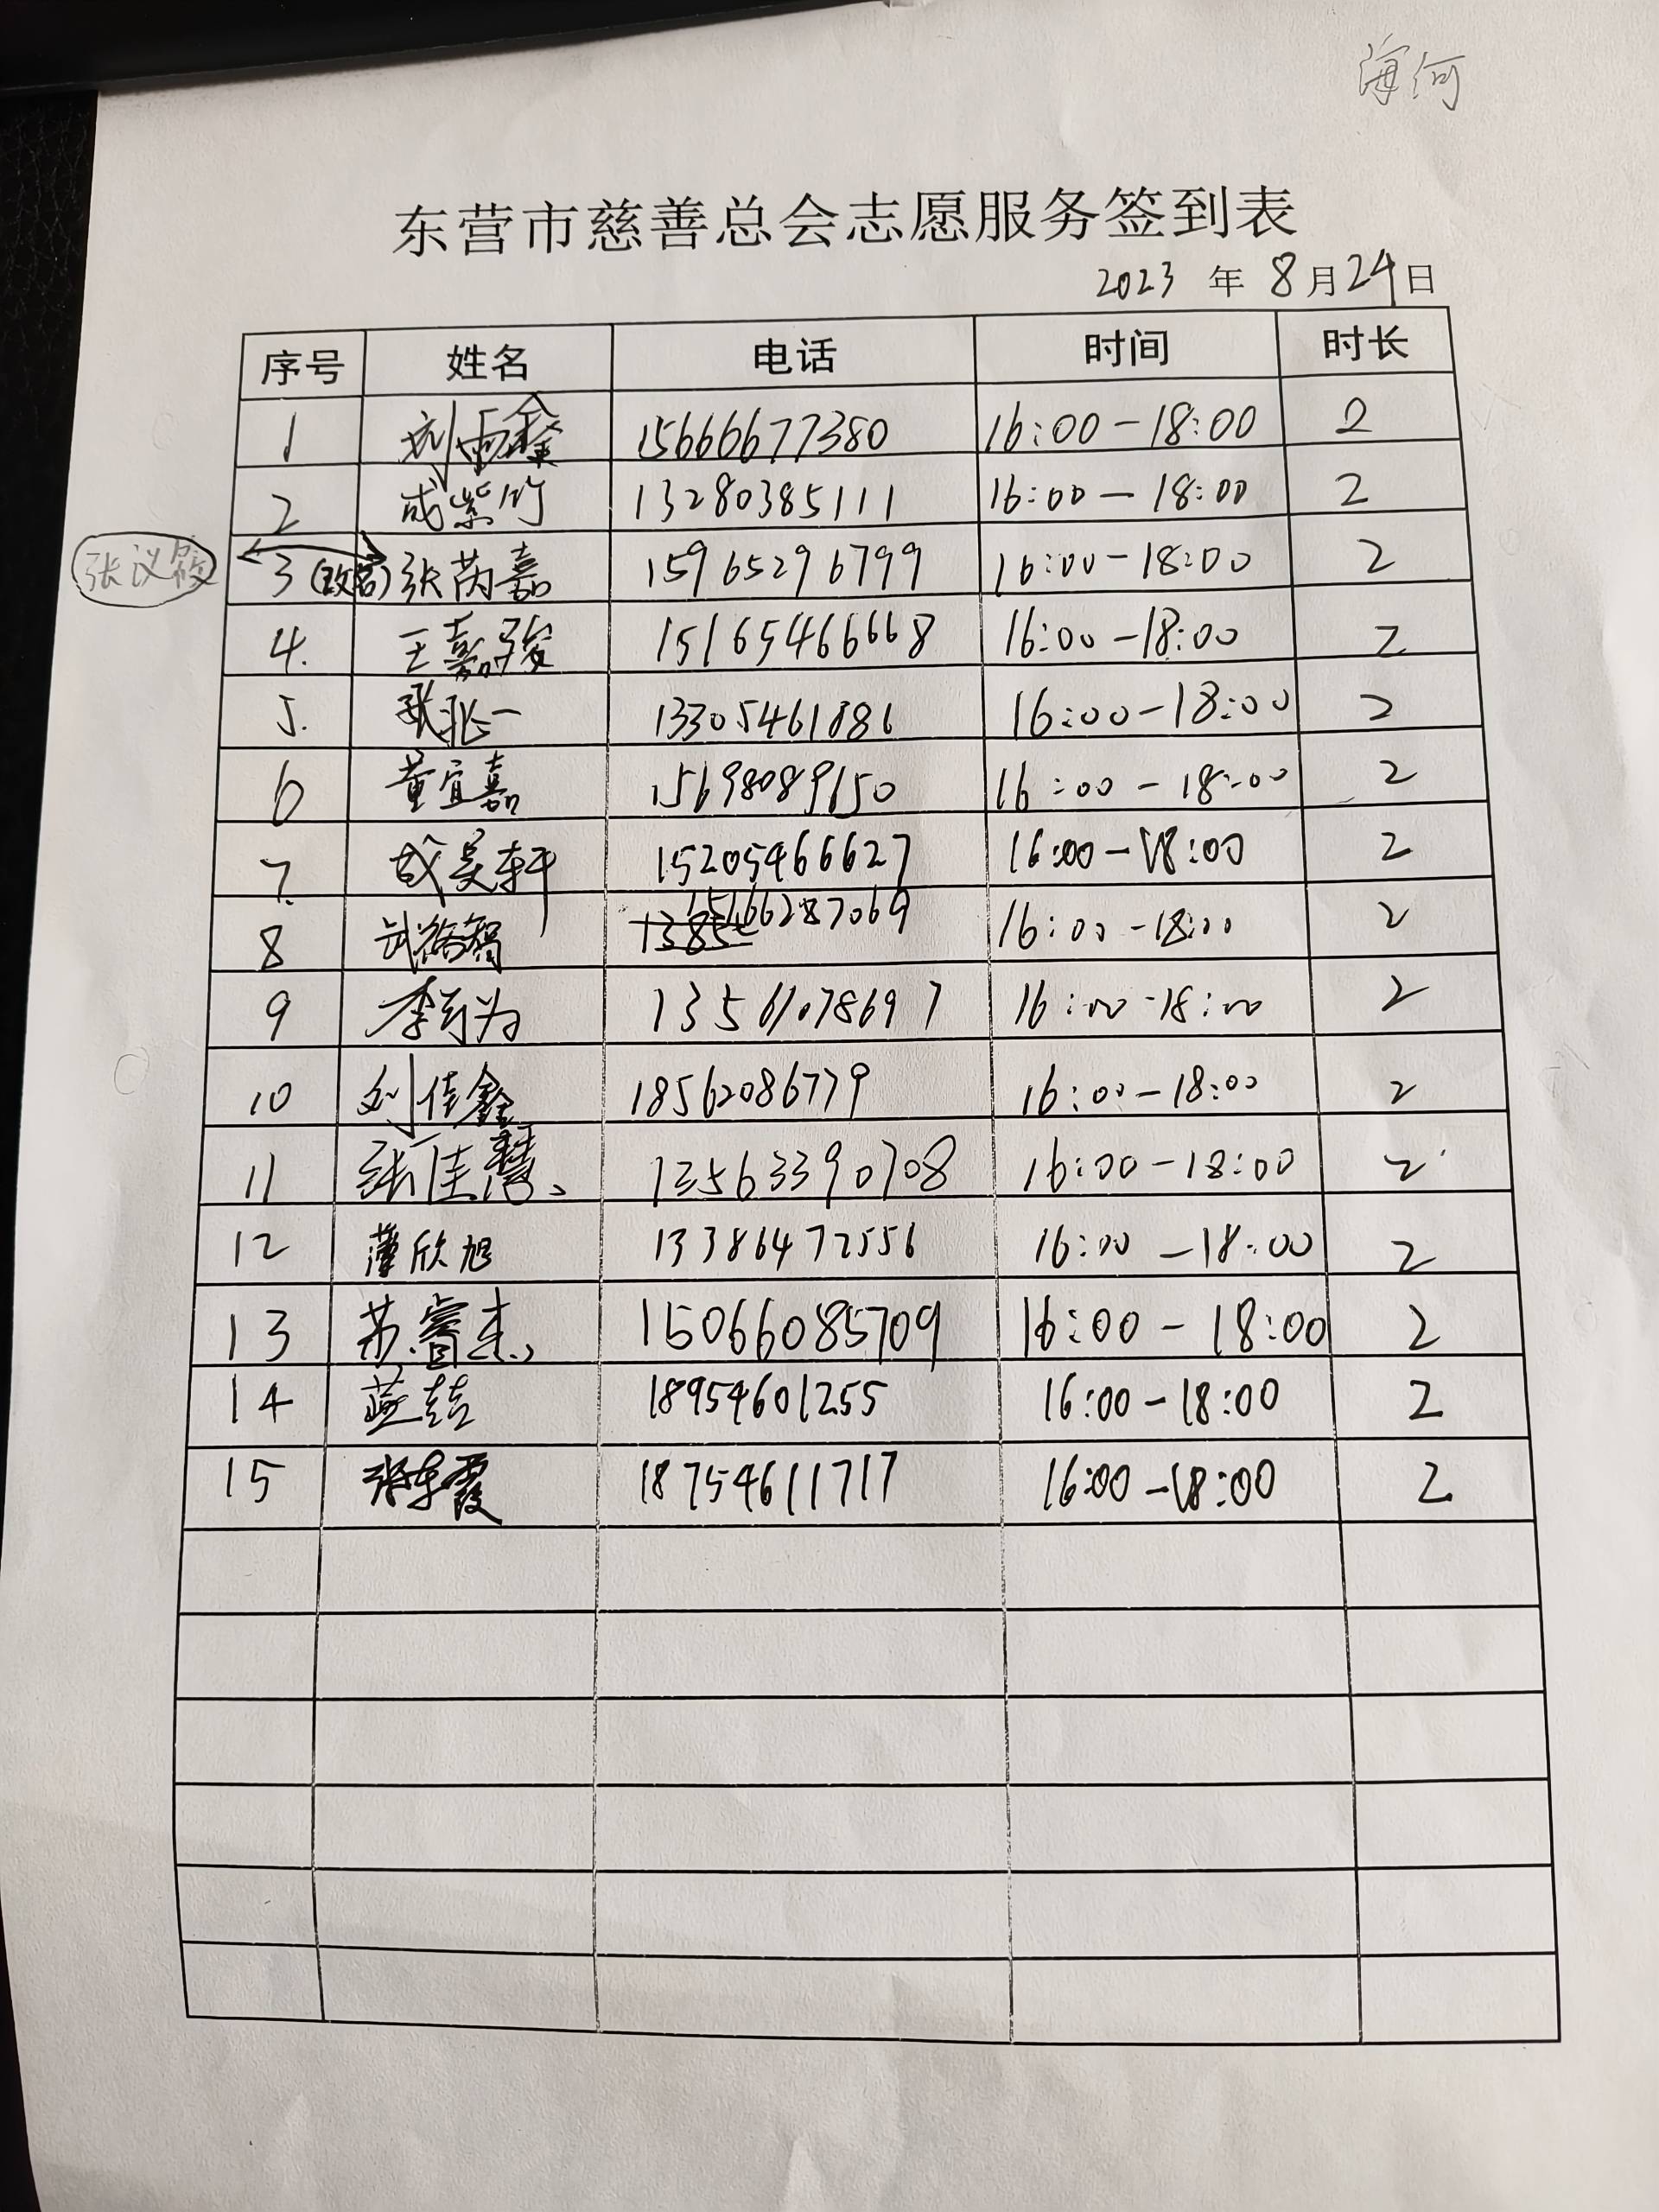 海河
东营市慈善总会志愿服务签到表
2023 年 8月24日
序号 姓名 电话 时间 时长
1 刘雨鑫 15666677380 16:00-18:00 2
2 成紫竹 13280385111 16:00-18:00 2
张议 3 (改名) 张芮嘉 15965296799 16:00-18:00 2
4. 王嘉骏 15165466668 16:00-18:00 2
5. 一 13305461886 16:00-18:00 2
6 董宜嘉 15698089150 16:00-18:00 2
7. 成昊轩 15205466627 16:00-18:00 2
8 15166287069 16:00-18:00 2
9 李可为 13561078697 16:00-18:00 2
10 刘佳鑫 18562086779 16:00-18:00 2
11 张佳慧 13563390708 16:00-18:00 2
12 薄欣旭 13386472556 16:00-18:00 2
13 苏睿杰 15066085709 16:00-18:00 2
14 18954601255 16:00-18:00 2
15 张东霞 18754611717 16:00-18:00 2